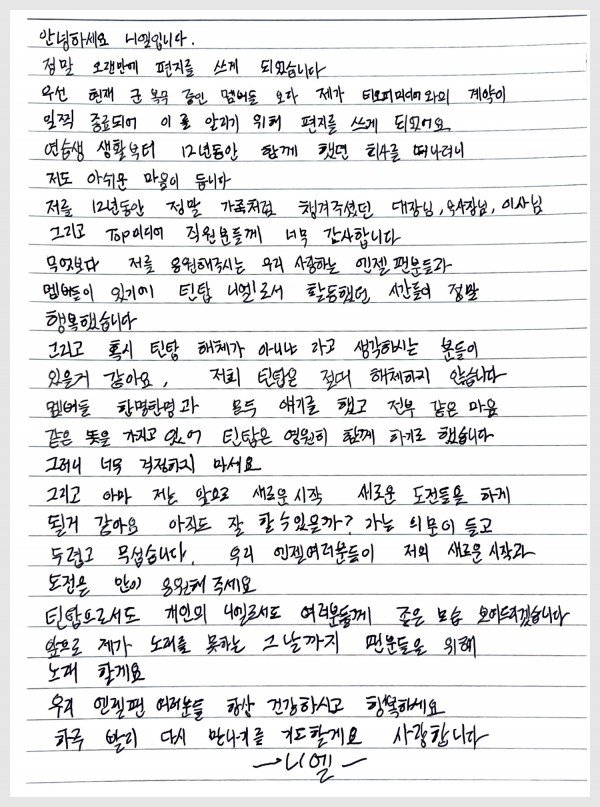 안녕하세요 니엘입니다.
정말 오랜만에 편지를 쓰게 되었습니다
우선 현재 군 복무 중인 멤버들 보다 제가 티오피미디어와의 계약이
일찍 종료되어 이를 알리기 위해 편지를 쓰게 되었어요
연습생 생활부터 12년동안 함께 했던 회사를 떠나려니
저도 아쉬운 마음이 듭니다
저를 12년동안 정말 가족처럼 챙겨주셨던 대장님, 우사장님, 이사님
그리고 Top미디어 직원분들께 너무 감사합니다
무엇보다 저를 응원해주시는 우리 사랑하는 엔젤 팬분들과
멤버들이 있기에 틴탑 니엘로서 활동했던 시간들이 정말
행복했습니다
그리고 혹시 틴탑 해체가 아니냐 라고 생각하시는 분들이
있을거 같아요, 저희 틴탑은 절대 해체하지 않습니다
멤버들 한명한명과 모두 얘기를 했고 전부 같은 마음
같은 뜻을 가지고 있어 틴탑은 영원히 함께 하기로 했습니다
그러니 너무 걱정하지 마세요
그리고 아마 저는 앞으로 새로운 시작 새로운 도전들을 하게
될거 같아요 아직도 잘 할수있을까? 가는 의문이 들고
두렵고 무섭습니다. 우리 엔젤여러분들이 저의 새로운 시작과
도전을 많이 응원해 주세요
틴탑으로서도 개인의 니엘로서도 여러분들께 좋은 모습 보여드리겠습니다
앞으로 제가 노래를 못하는 그날까지 팬분들을 위해
노래 할게요
우리 엔젤팬 여러분들 항상 건강하시고 행복하세요
하루 빨리 다시 만나기를 기도할게요 사랑합니다
니엘